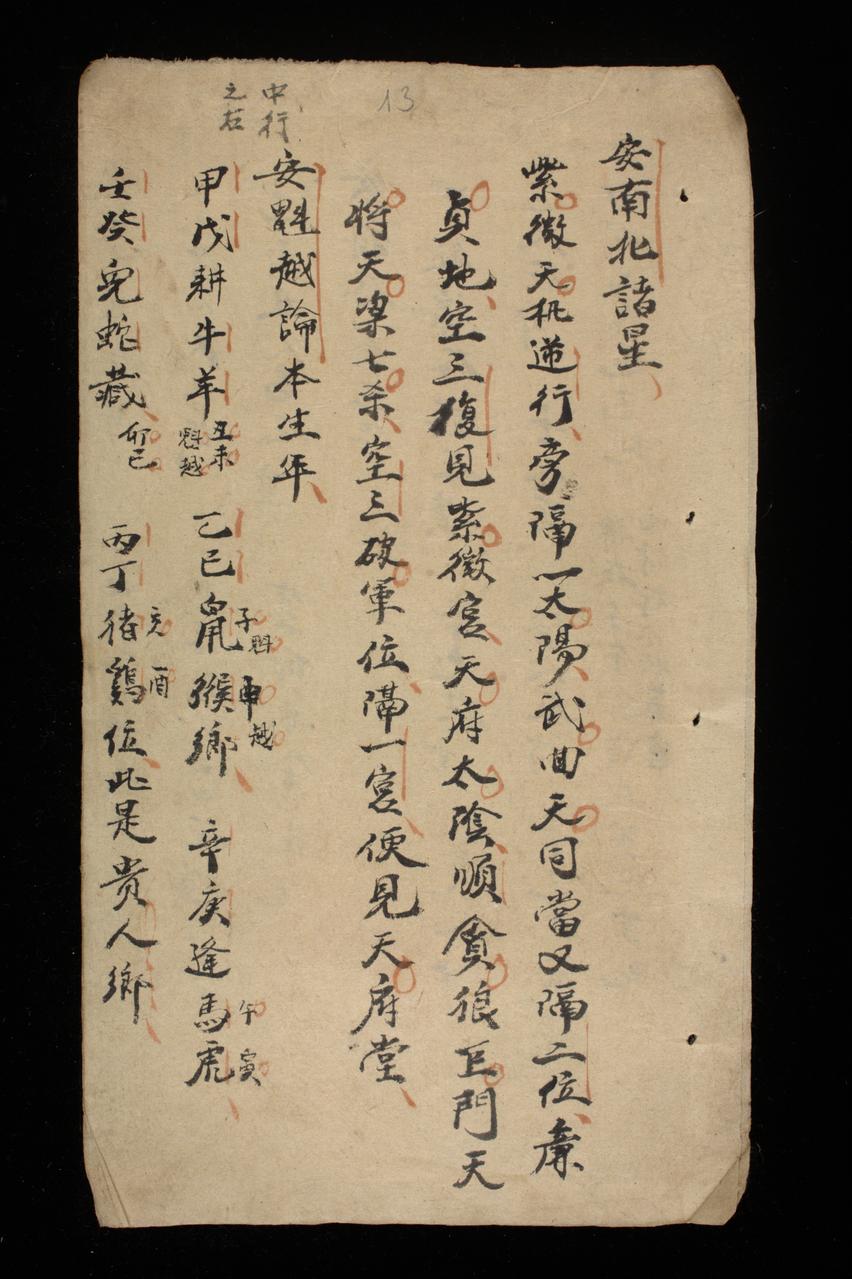 13
安南北諸星
紫微天机逆行旁隔一太陽武曲天同當又隔二位廉
貞地空三復見紫微宮天府太陰順貪狼巨門天
将天梁七杀空三破軍位隔一宮便見天府堂
中行
之右
安魁越論本生年
甲戊耕牛羊 丑未 魁越 乙己鼠猴鄉 子魁 申越 辛庚逢馬虎 午寅
壬癸兔蛇藏 卯巳 丙丁猪鷄位此是貴人鄉 亥酉